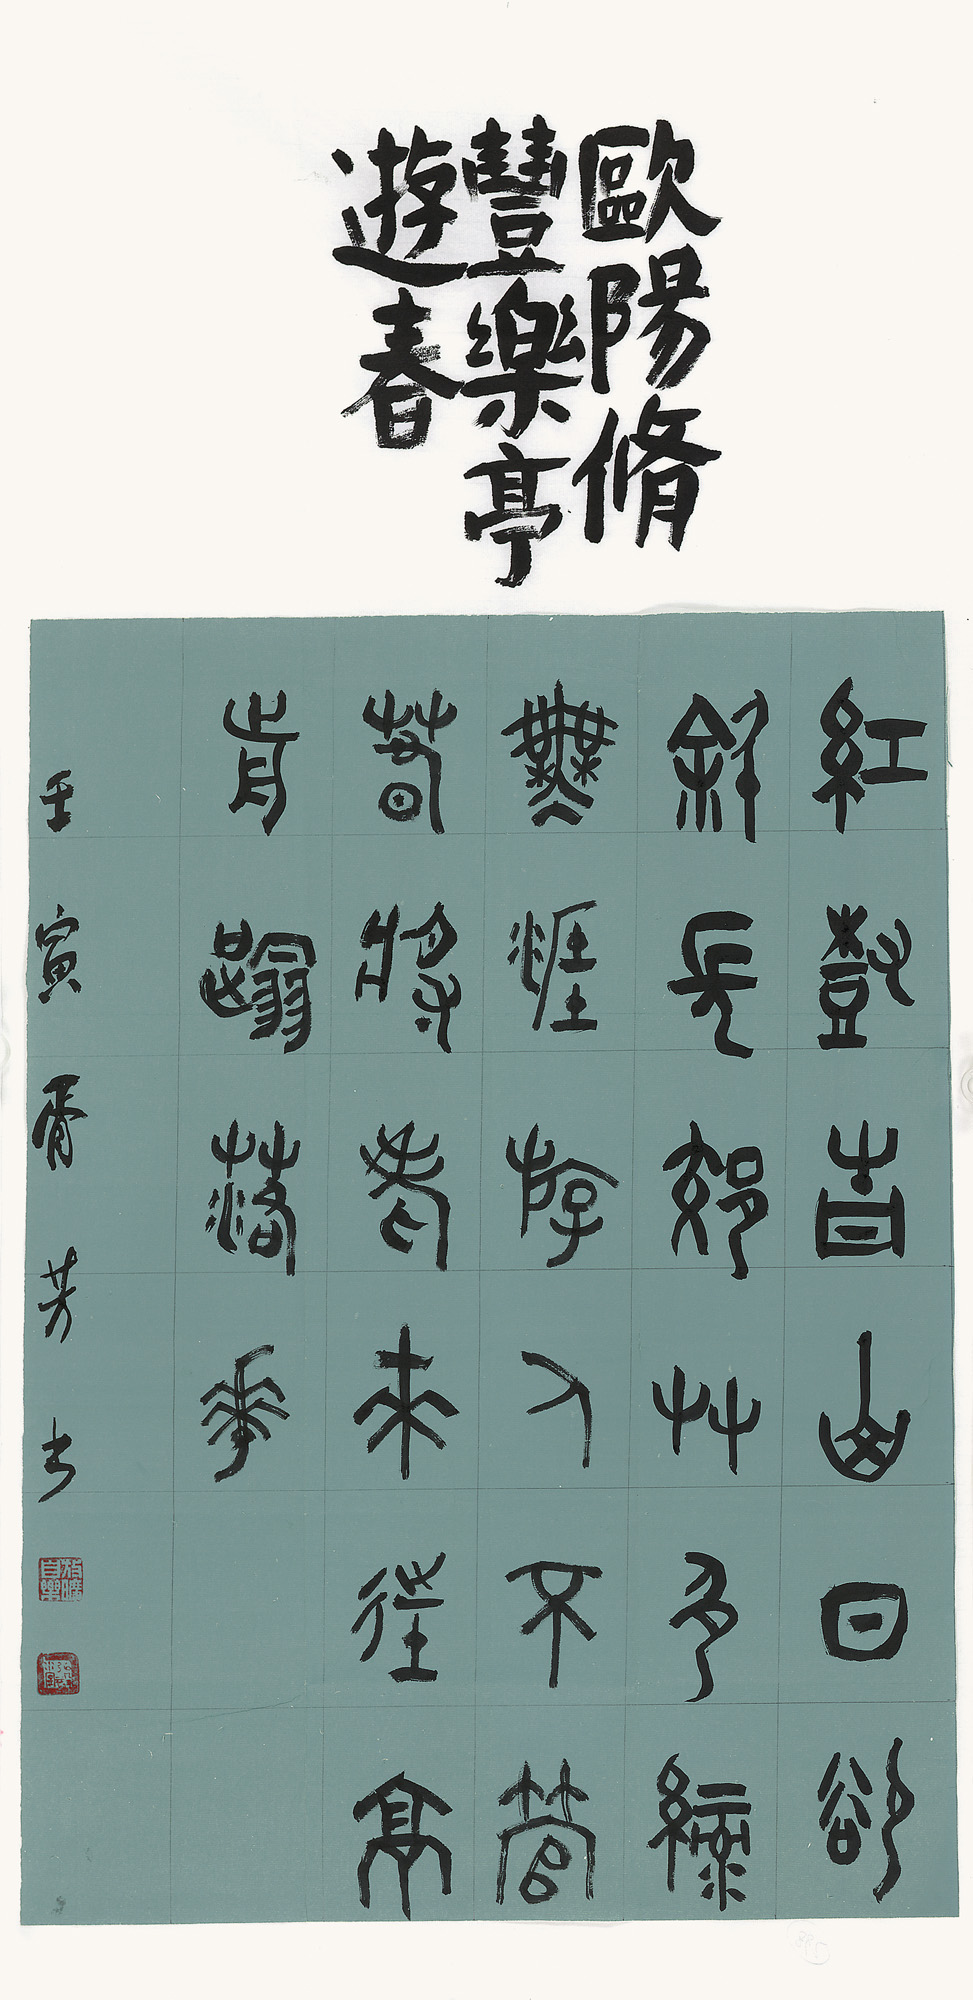 歐陽脩
豐樂亭
遊春
紅尌青山日欲
斜長郊艸色綠
無涯斿人不管
春將老來往亭
歬蹋落華
壬寅胥芳书